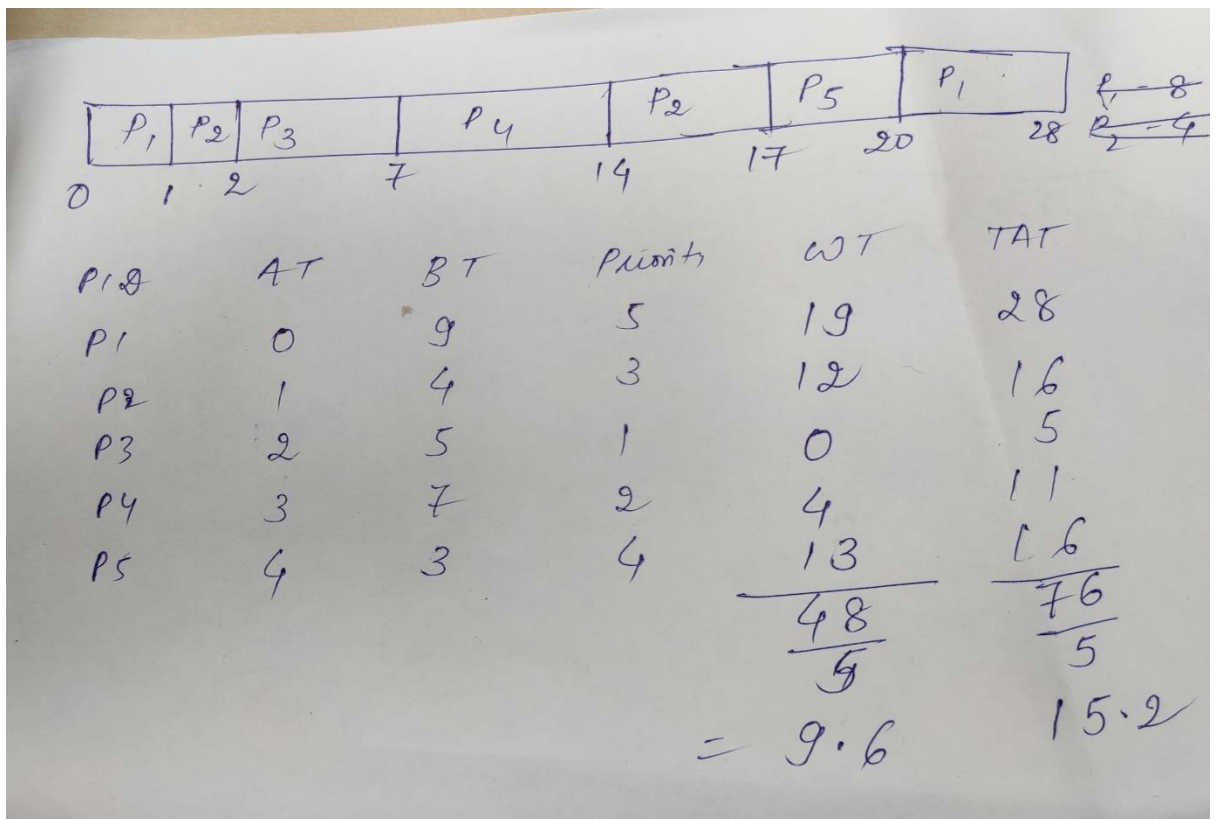 P1 P2 P3 P4 P2 P5 P1 P1 - 8
0 1 2 7 14 17 20 28 P2 - 4
PID AT BT Priority WT TAT
P1 0 9 5 19 28
P2 1 4 3 12 16
P3 2 5 1 0 5
P4 3 7 2 4 11
P5 4 3 4 13 16
48 76
5 5
= 9.6 15.2